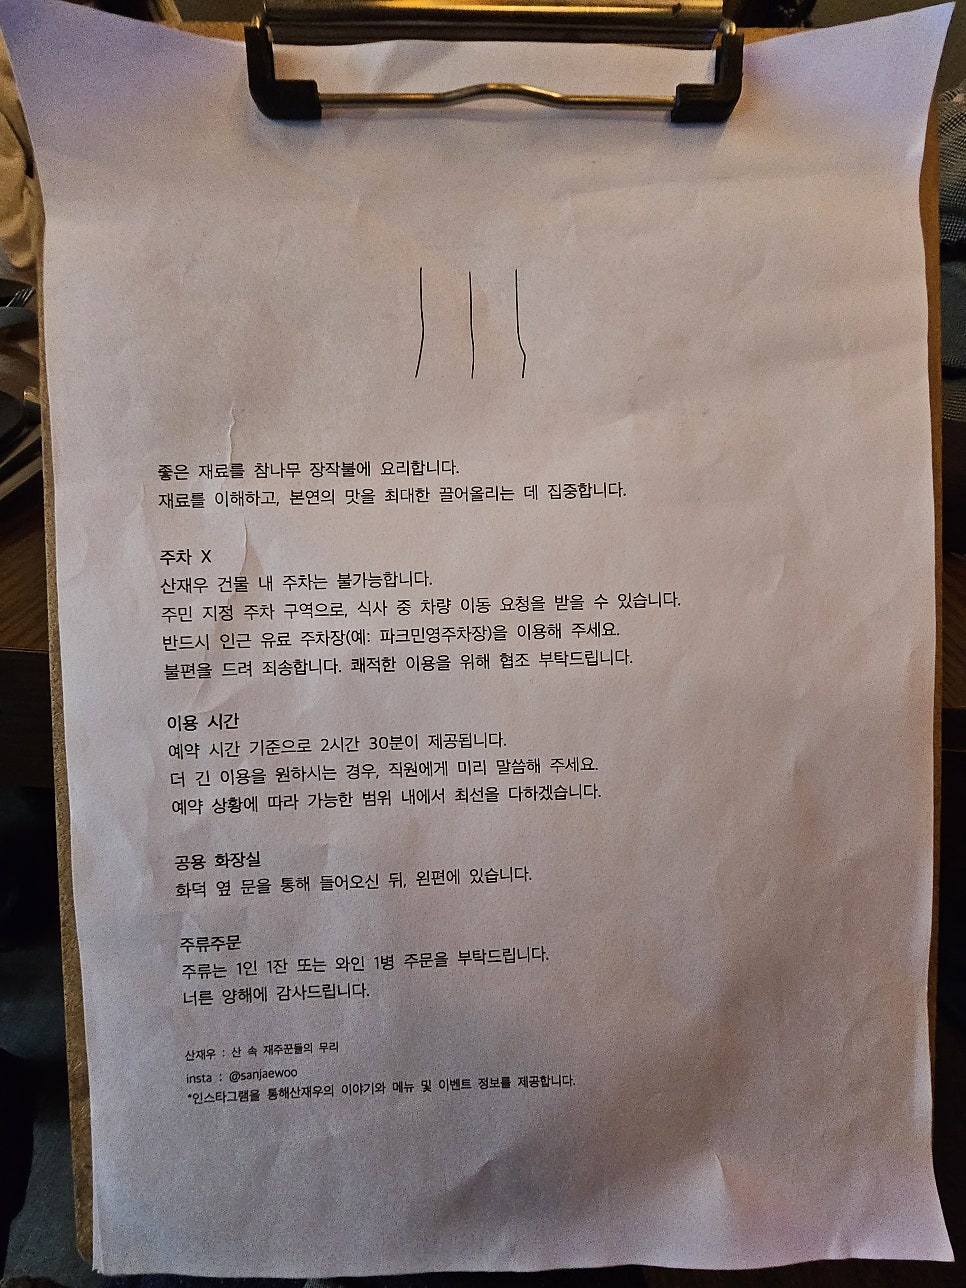 좋은 재료를 참나무 장작불에 요리합니다.
재료를 이해하고, 본연의 맛을 최대한 끌어올리는 데 집중합니다.
주차 X
산재우 건물 내 주차는 불가능합니다.
주민 지정 주차 구역으로, 식사 중 차량 이동 요청을 받을 수 있습니다.
반드시 인근 유료 주차장(예: 파크민영주차장)을 이용해 주세요.
불편을 드려 죄송합니다. 쾌적한 이용을 위해 협조 부탁드립니다.
이용 시간
예약 시간 기준으로 2시간 30분이 제공됩니다.
더 긴 이용을 원하시는 경우, 직원에게 미리 말씀해 주세요.
예약 상황에 따라 가능한 범위 내에서 최선을 다하겠습니다.
공용 화장실
화덕 옆 문을 통해 들어오신 뒤, 왼편에 있습니다.
주류주문
주류는 1인 1잔 또는 와인 1병 주문을 부탁드립니다.
너른 양해에 감사드립니다.
산재우 : 산 속 재주꾼들의 무리
insta : @sanjaewoo
*인스타그램을 통해산재우의 이야기와 메뉴 및 이벤트 정보를 제공합니다.